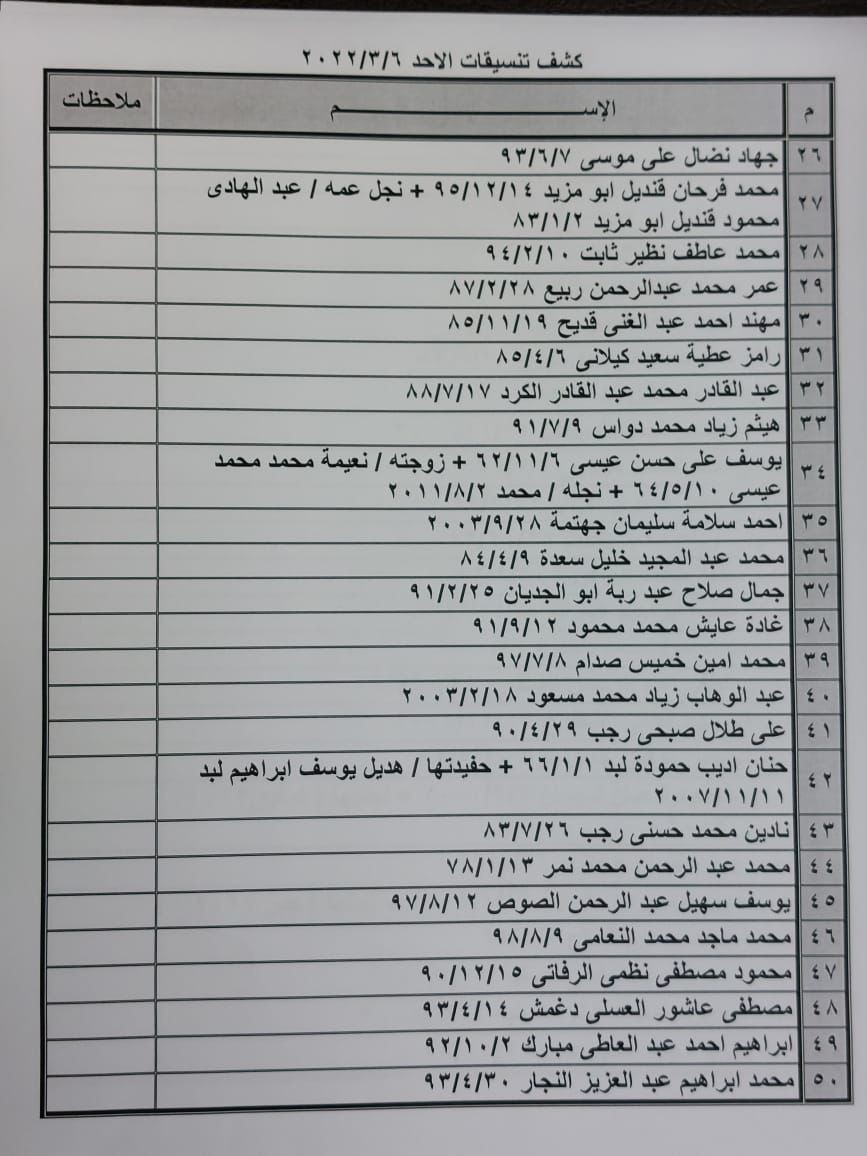 كشف تنسيقات الاحد ٢٠٢٢/٣/٦
م الإســـــــــــم ملاحظات
٢٦ جهاد نضال على موسى ٩٣/٦/٧
٢٧ محمد فرحان قنديل ابو مزيد ٩٥/١٢/١٤ + نجل عمه / عبد الهادى
محمود قنديل ابو مزيد ٨٣/١/٢
٢٨ محمد عاطف نظير ثابت ٩٤/٢/١٠
٢٩ عمر محمد عبدالرحمن ربيع ٨٧/٢/٢٨
٣٠ مهند احمد عبد الغنى قديح ٨٥/١١/١٩
٣١ رامز عطية سعيد كيلانى ٨٥/٤/٦
٣٢ عبد القادر محمد عبد القادر الكرد ٨٨/٧/١٧
٣٣ هيثم زياد محمد دواس ٩١/٧/٩
٣٤ يوسف على حسن عيسى ٦٢/١١/٦ + زوجته / نعيمة محمد محمد
عيسى ٦٤/٥/١٠ + نجله / محمد ٢٠١١/٨/٢
٣٥ احمد سلامة سليمان جهتمة ٢٠٠٣/٩/٢٨
٣٦ محمد عبد المجيد خليل سعدة ٨٤/٤/٩
٣٧ جمال صلاح عبد ربة ابو الجديان ٩١/٢/٢٥
٣٨ غادة عايش محمد محمود ٩١/٩/١٢
٣٩ محمد امين خميس صدام ٩٧/٧/٨
٤٠ عبد الوهاب زياد محمد مسعود ٢٠٠٣/٢/١٨
٤١ على طلال صبحى رجب ٩٠/٤/٢٩
٤٢ حنان اديب حمودة لبد ٦٦/١/١ + حفيدتها / هديل يوسف ابراهيم لبد
٢٠٠٧/١١/١١
٤٣ نادين محمد حسنى رجب ٨٣/٧/٢٦
٤٤ محمد عبد الرحمن محمد نمر ٧٨/١/١٣
٤٥ يوسف سهيل عبد الرحمن الصوص ٩٧/٨/١٢
٤٦ محمد ماجد محمد النعامى ٩٨/٨/٩
٤٧ محمود مصطفى نظمى الرفاتى ٩٠/١٢/١٥
٤٨ مصطفى عاشور العسلى دغمش ٩٣/٤/١٤
٤٩ ابراهيم احمد عبد العاطى مبارك ٩٢/١٠/٢
٥٠ محمد ابراهيم عبد العزيز النجار ٩٣/٤/٣٠